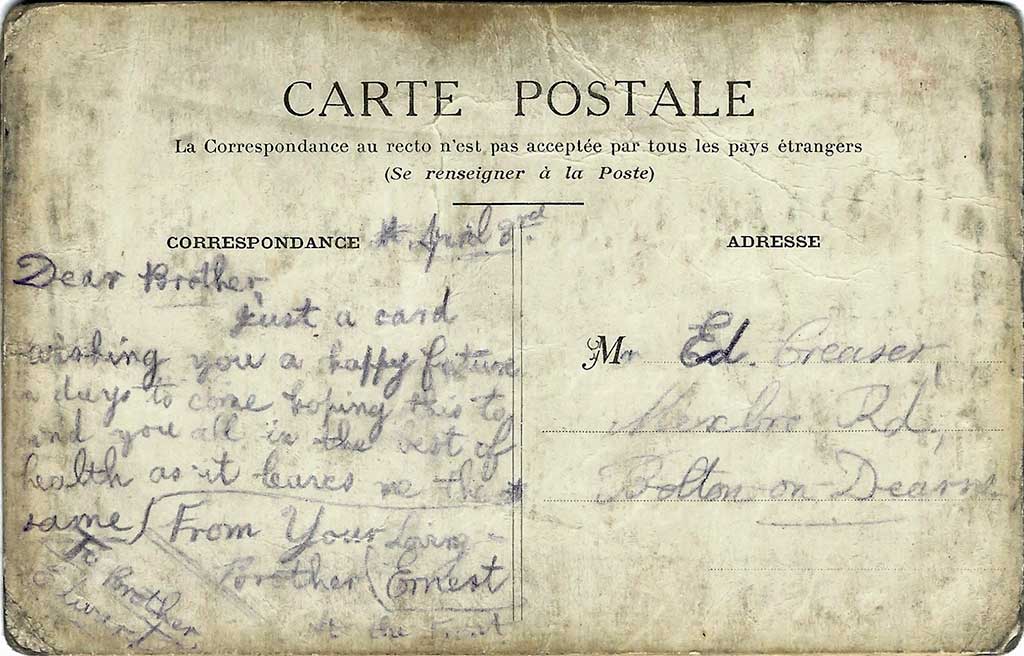 CARTE POSTALE
La Correspondance au recto n'est pas acceptée par tous les pays étrangers
(Se renseigner à la Poste)
CORRESPONDANCE
April 3rd
Dear Brother,
Just a card
wishing you a happy future
in days to come hoping this to
find you all in the best of
health as it leaves me the
same
From Your Loving
Brother Ernest
At the Front
To Brother
ADRESSE
Mr Ed. Creaser,
Mexbro Rd,
Bolton-on-Dearne